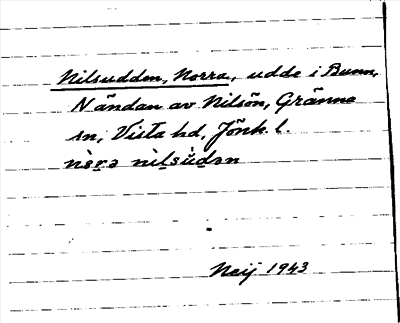 Nilsudden, Norra, udde i Bunn,
N ändan av Nilsön, Gränna
sn, Vista hd, Jönk. l.
nòr̲ə nìl̲sùd̲ən
Neij 1943